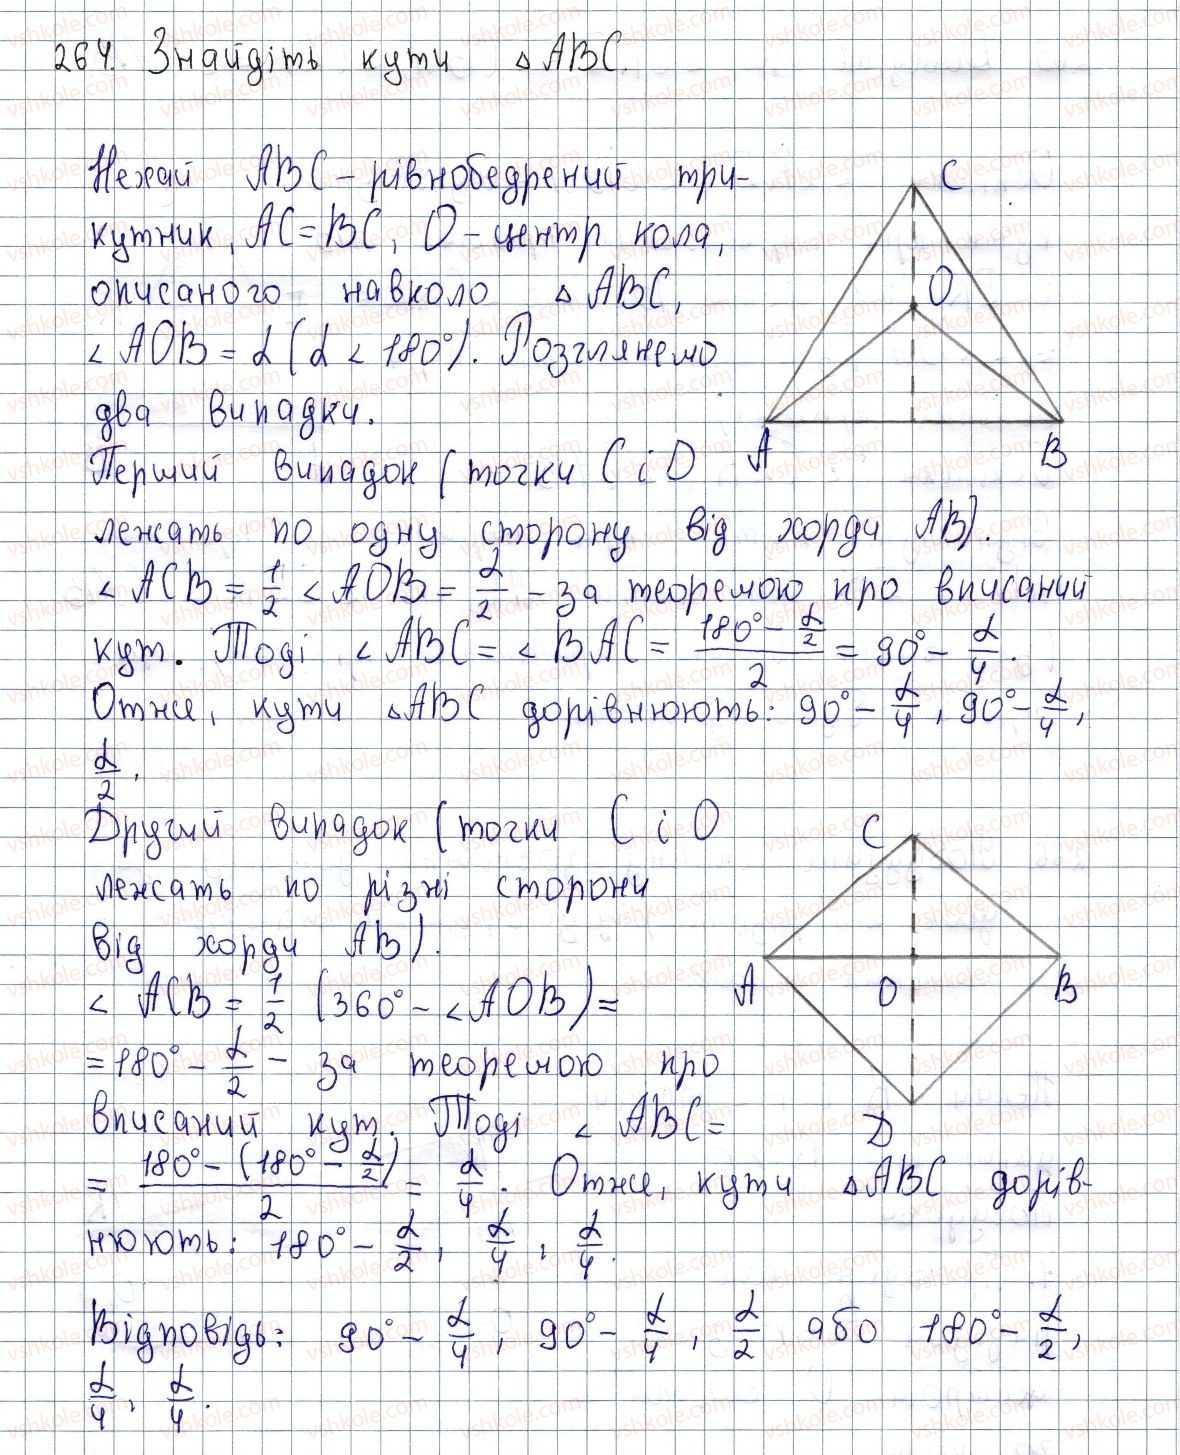 264. Знайдіть кути △ABC.
Нехай ABC – рівнобедрений три-
кутник, AC = BC, O – центр кола,
описаного навколо △ABC,
∠AOB = α (α < 180°). Розглянемо
два випадки.
Перший випадок (точки C і O
лежать по одну сторону від хорди AB).
∠ACB = 1/2 ∠AOB = α/2 – за теоремою про вписаний
кут. Тоді ∠ABC = ∠BAC = (180° – α/2)/2 = 90° – α/4.
Отже, кути △ABC дорівнюють: 90° – α/4, 90° – α/4,
α/2.
C
O
A
B
Другий випадок (точки C і O
лежать по різні сторони
від хорди AB).
∠ACB = 1/2 (360° – ∠AOB) =
= 180° – α/2 – за теоремою про
вписаний кут. Тоді ∠ABC =
= (180° – (180° – α/2))/2 = α/4. Отже, кути △ABC дорів-
нюють: 180° – α/2, α/4, α/4.
C
A
O
B
D
Відповідь: 90° – α/4, 90° – α/4, α/2 або 180° – α/2,
α/4, α/4.